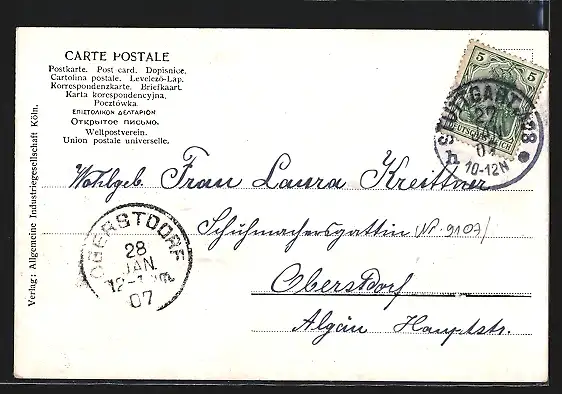 CARTE POSTALE
Postkarte. Post card. Dopisnice.
Cartolina postale. Levelező-Lap.
Korrespondenzkarte. Briefkaart.
Karta korespondencyjna.
Pocztówka.
ΕΠΙΣΤΟΛΙΚΟΝ ΔΕΛΤΑΡΙΟΝ
Открытое письмо.
Weltpostverein.
Union postale universelle.
5 5
STUTTGART 28
27
JAN
07
10-12N
DEUTSCHES REICH
Wohlgeb. Frau Laura Kreittner
Schuhmachersgattin (Nr. 9107)
Oberstdorf
Algäu Hauptstr.
OBERSTDORF
28
JAN.
07
Verlag: Allgemeine Industriegesellschaft Köln.